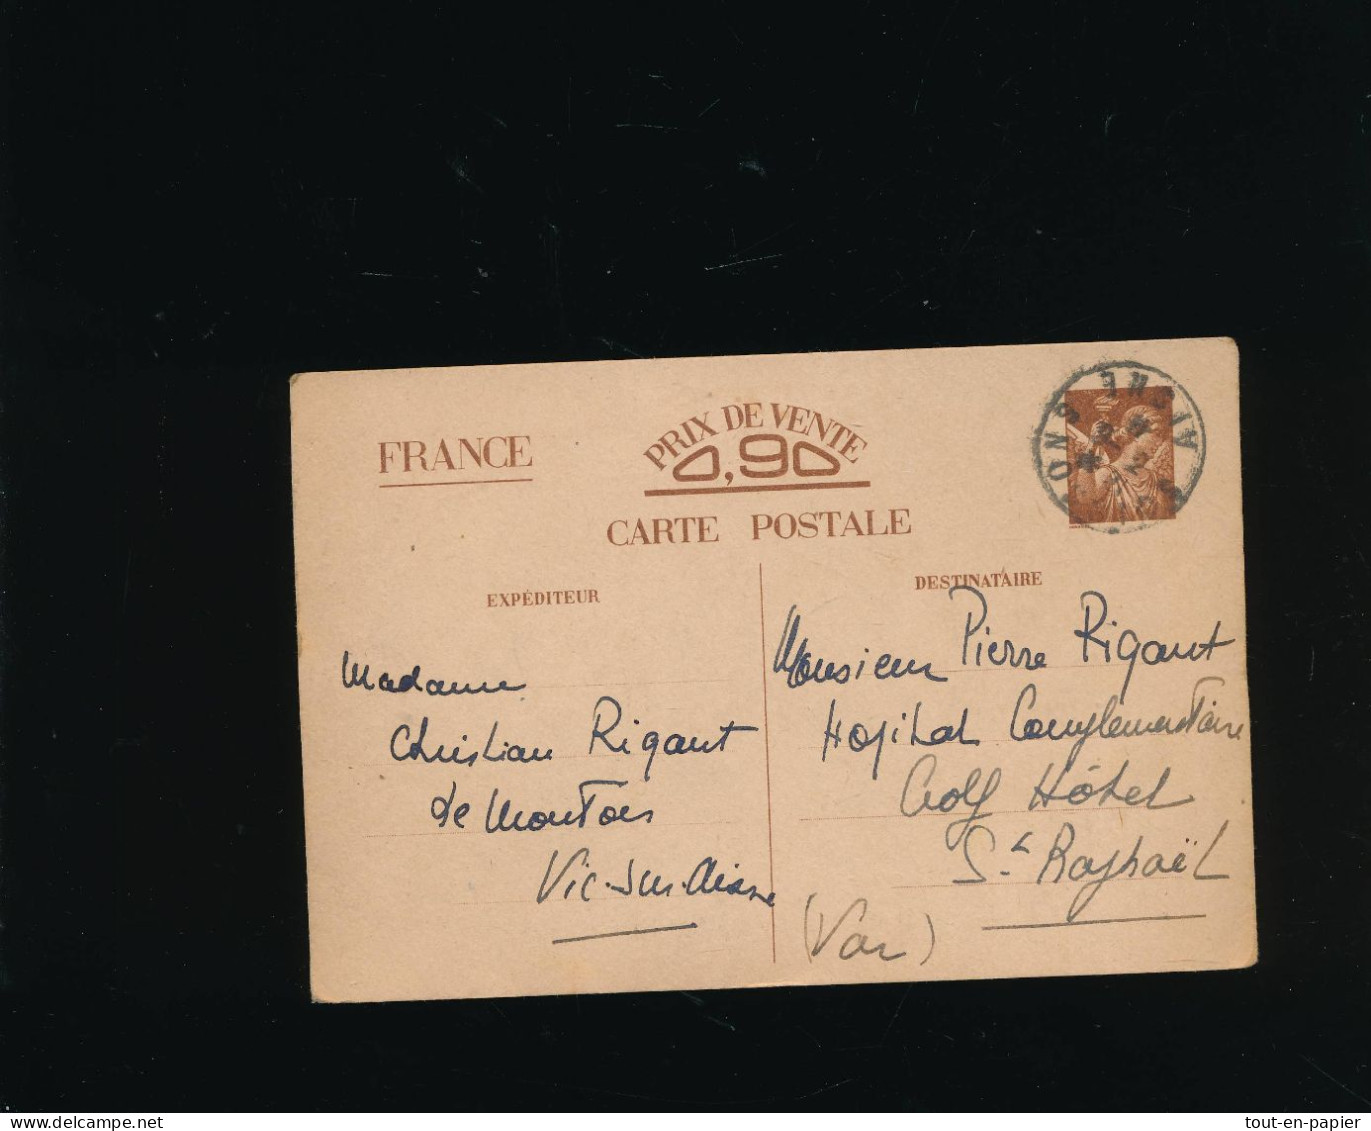 FRANCE
PRIX DE VENTE
0,90
CARTE POSTALE
EXPÉDITEUR
DESTINATAIRE
Madame
Christian Rigaut
de Montois
Vic-sur-Aisne
Monsieur Pierre Rigaut
Hopital Complementaire
Golf Hôtel
St Raphaël
(Var)
AISNE
tout-en-papier